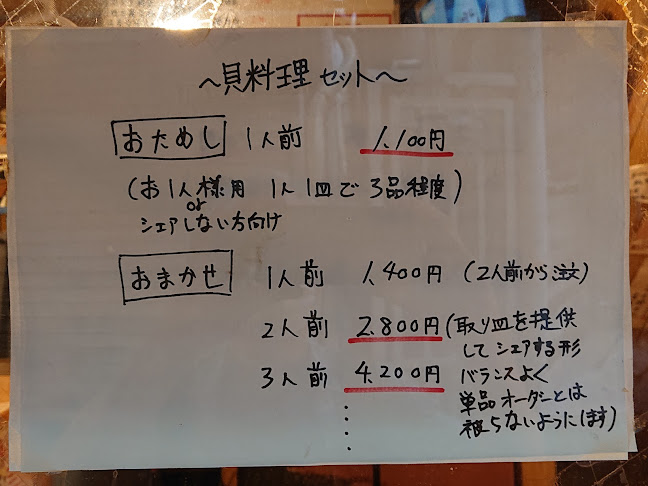 〜貝料理セット〜
おためし 1人前 1,100円
(お1人様用 1人1皿で3品程度)
or
シェアしない方向け
おまかせ 1人前 1,400円 (2人前から注文)
2人前 2,800円 (取り皿を提供
してシェアする形
3人前 4,200円 バランスよく
単品オーダーとは
被らないようにします)